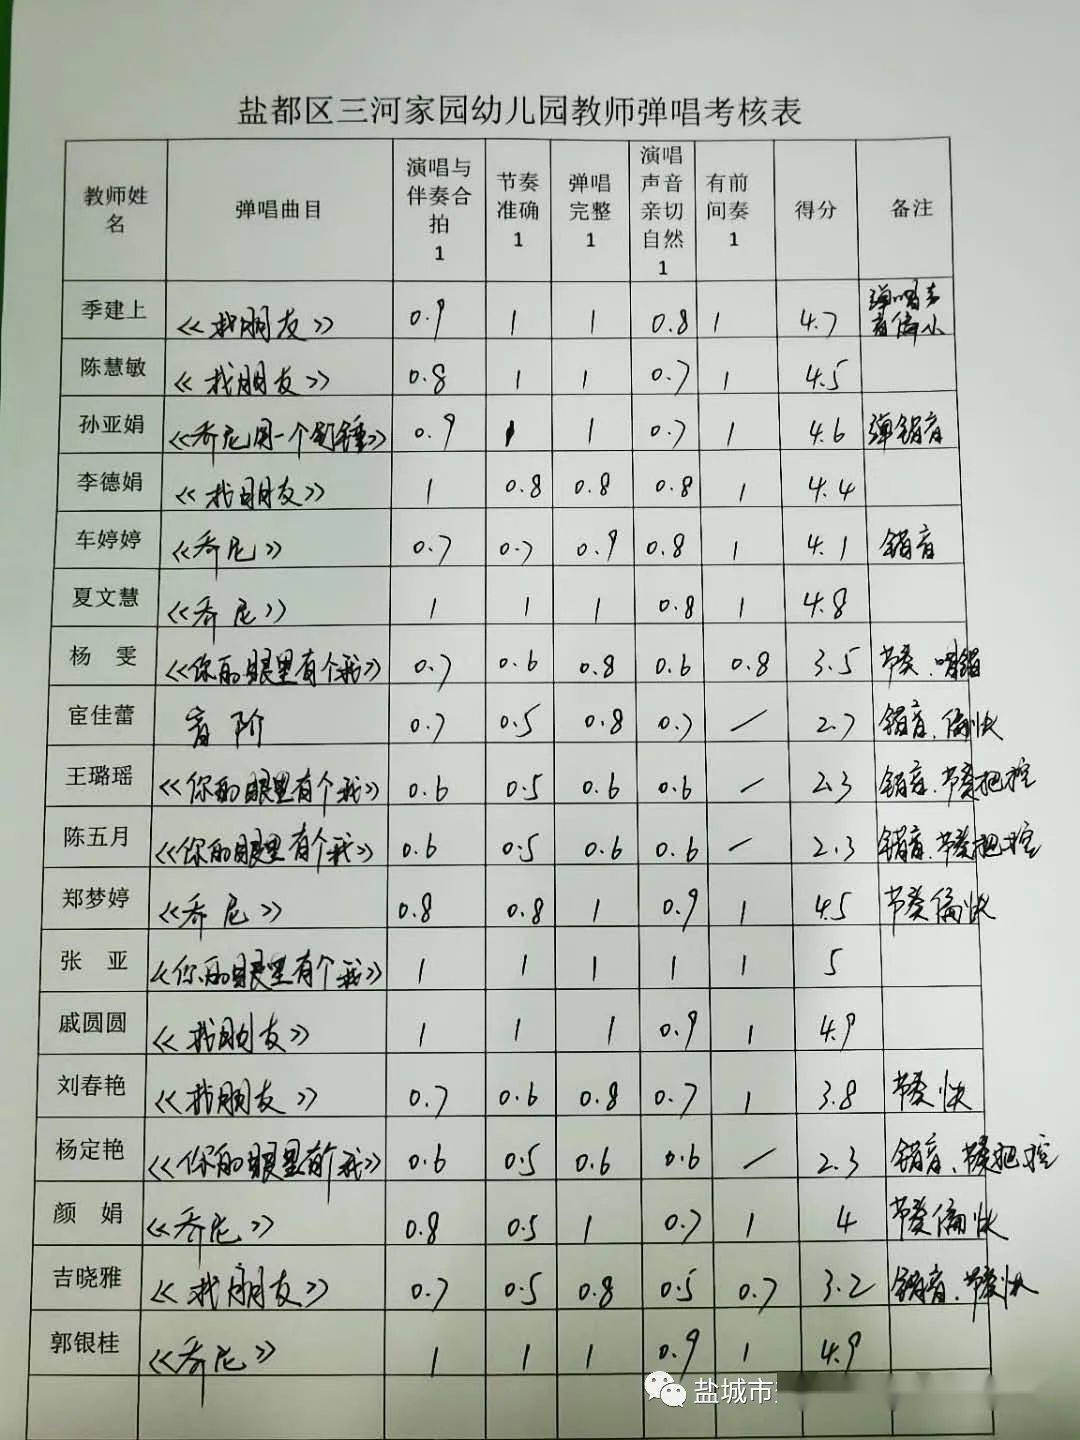 盐都区三河家园幼儿园教师弹唱考核表
教师姓名 弹唱曲目 演唱与伴奏合拍1 节奏准确1 弹唱完整1 演唱声音亲切自然1 有前间奏1 得分 备注
季建上 《找朋友》 0.9 1 1 0.8 1 4.7 弹唱声音偏小
陈慧敏 《找朋友》 0.8 1 1 0.7 1 4.5
孙亚娟 《乔尼用一个钉锤》 0.9 1 1 0.7 1 4.6 弹错音
李德娟 《找朋友》 1 0.8 0.8 0.8 1 4.4
车婷婷 《乔尼》 0.7 0.7 0.9 0.8 1 4.1 错音
夏文慧 《乔尼》 1 1 1 0.8 1 4.8
杨 雯 《你的眼里有个我》 0.7 0.6 0.8 0.6 0.8 3.5 节奏、唱错
宦佳蕾 音阶 0.7 0.5 0.8 0.7 — 2.7 错音、偏快
王璐瑶 《你的眼里有个我》 0.6 0.5 0.6 0.6 — 2.3 错音、节奏把控
陈五月 《你的眼里有个我》 0.6 0.5 0.6 0.6 — 2.3 错音、节奏把控
郑梦婷 《乔尼》 0.8 0.8 1 0.9 1 4.5 节奏偏快
张 亚 《你的眼里有个我》 1 1 1 1 1 5
戚圆圆 《找朋友》 1 1 1 0.9 1 4.9
刘春艳 《找朋友》 0.7 0.6 0.8 0.7 1 3.8 节奏快
杨定艳 《你的眼里有个我》 0.6 0.5 0.6 0.6 — 2.3 错音、节奏把控
颜 娟 《乔尼》 0.8 0.5 1 0.7 1 4 节奏偏快
吉晓雅 《找朋友》 0.7 0.5 0.8 0.5 0.7 3.2 错音、节奏快
郭银桂 《乔尼》 1 1 1 0.9 1 4.9
盐城市